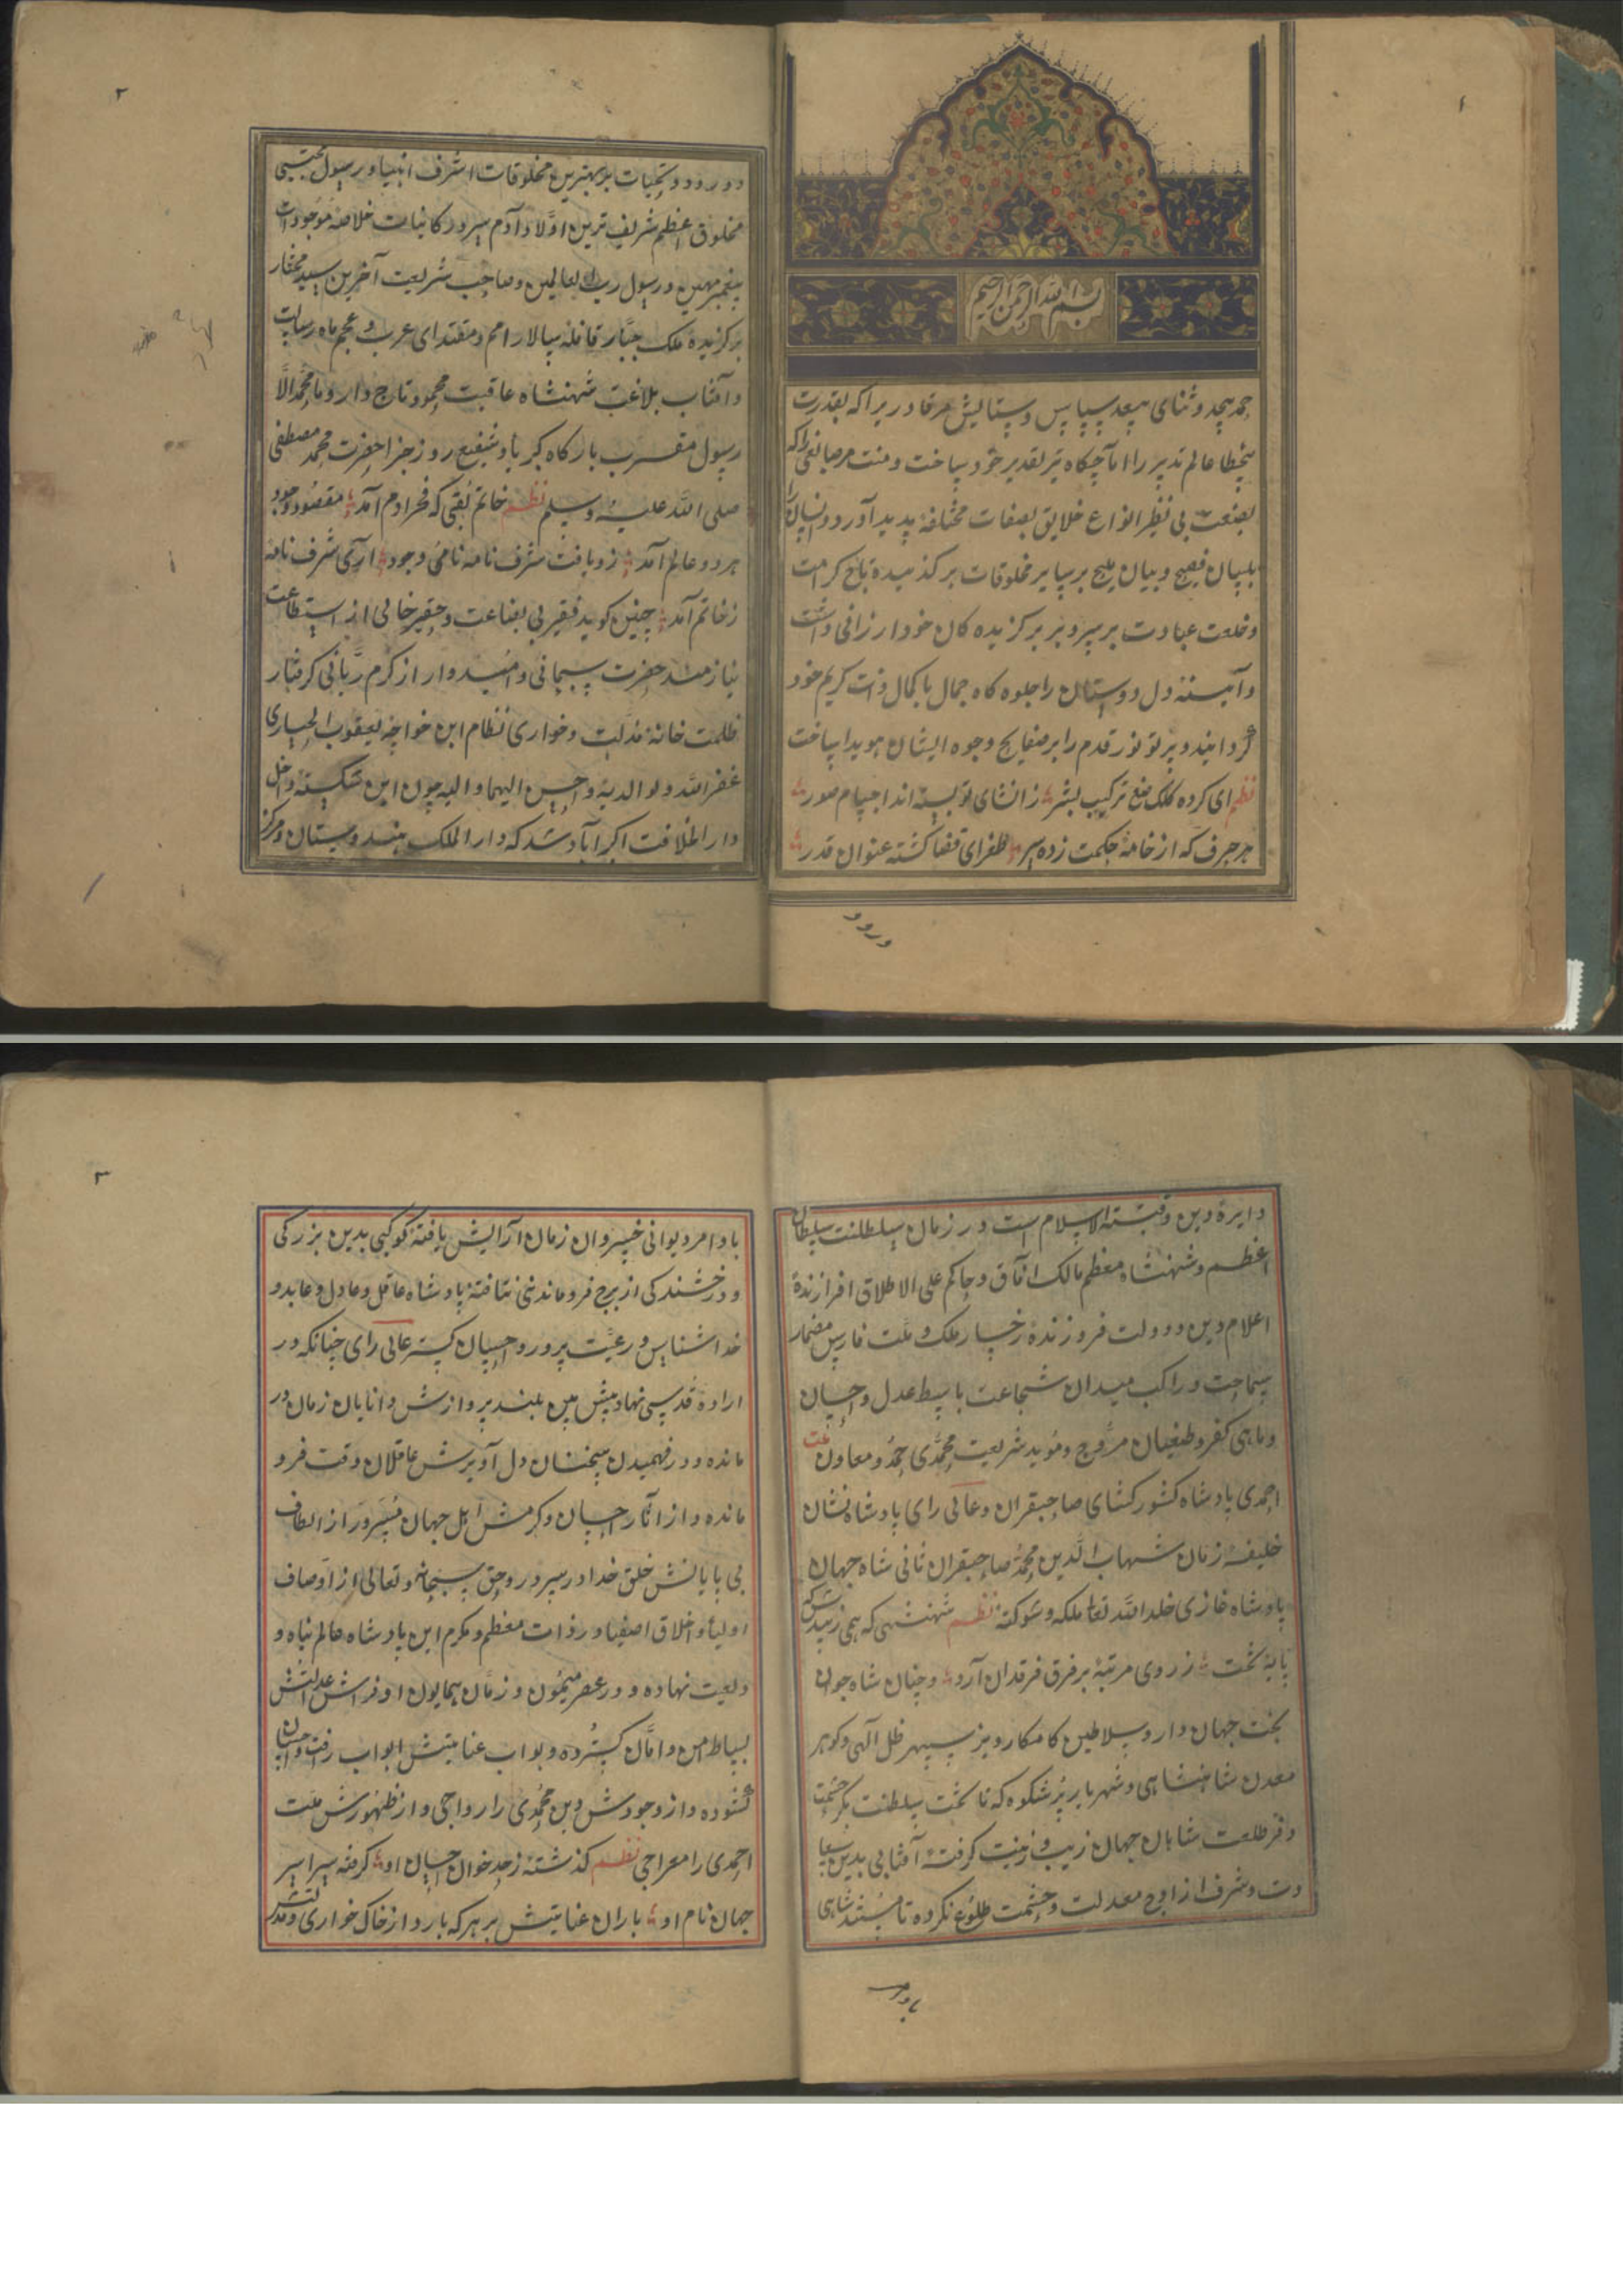 ۱
بسم الله الرحمن الرحیم
حمد بیحد و ثنای بیعد سپاس و ستایش مر قادریرا که بقدرت
بیخطا عالم تدبیر را آماجگاه تیر تقدیر خود ساخت و منت مر صانعی را که
بصنعت بی نظیر انواع خلایق بصفات مختلفه پدید آورد و انسان را
بلسان فصیح و بیان ملیح بر سایر مخلوقات برگذیده تاج کرامت
و خلعت عبادت بر سر و بر برکزیده کان خود ارزانی داشت
و آیینه دل دوستان را جلوه کاه جمال با کمال ذات کریم خود
گردانید و پرتو نور قدم را بر صفایح وجوه ایشان هویدا ساخت
نظم ای کرده کلک صنع ترکیب بشر ز انشای تو بسته اند اجسام صور
هر حرف که از خامه حکمت زده سر طغرای قضا کشته عنوان قدر
درود
۲
درود و تحیات بر بهترین مخلوقات اشرف انبیا و رسول مجتبی
مخلوق اعظم شریف ترین اولاد آدم سرور کاینات خلاصه موجودات
پیغمبر مهین و رسول رب العالمین و صاحب شریعت آخرین سید مختار
برکزیده ملک جبار قافله سالار امم و مقتدای عرب و عجم ماه رسالت
و آفتاب بلاغت شهنشاه عاقبت محمود تاج دار و ما محمد الا
رسول مقرب بارکاه کبریا و شفیع روز جزا حضرت محمد مصطفی
صلی الله علیه و سلم نظم خاتم لقبی که فخر آدم آمد مقصود وجود
هر دو عالم آمد زو یافت شرف نامه نامی وجود آری شرف نامه
ز خاتم آمد چنین کوید فقیر بی بضاعت و حقیر خالی از استطاعت
نیازمند حضرت سبحانی و امیدوار از کرم ربانی کرفتار
ظلمت خانه مذلت و خواری نظام ابن خواجه یعقوب الحصاری
غفر الله و لوالدیه و احسن الیهما و الیه چون این شکسته داخل
دار الخلافت اکبرآباد شد که دار الملک هندوستان و مرکز
دایره دین و قبة الاسلام است در زمان سلطنت سلطان
اعظم و شهنشاه معظم مالک آفاق و حاکم علی الاطلاق افرازنده
اعلام دین و دولت فروزنده رخسار ملک و ملت فارس مضمار
سماحت و راکب میدان شجاعت باسط عدل و احسان
و ماحی کفر و طغیان مروج و موید شریعت محمدی و معاون ملت
احمدی پادشاه کشور کشای صاحبقران و عالی رای پادشاه نشان
خلیفه زمان شهاب الدین محمد صاحبقران ثانی شاه جهان
پادشاه غازی خلد الله تعالی ملکه و شوکته نظم شهنشهی که همی زیبدش که
پایه تخت ز روی مرتبه بر فرق فرقدان آرد و چنان شاه جوان
بخت جهان دار و سلاطین کامکار و بر سپهر ظل الهی و کوهر
معدن شاهنشاهی و شهریار پر شکوه که تا تخت سلطنت بکر حشمت
و فر طلعت شاهان جهان زیب و زینت کرفته آفتابی بدین سعا
دت و شرف از اوج معدلت و حشمت طلوع نکرده تا مسند شاهی
باوامر
۳
باوامر دیوانی خسروان زمان آرایش یافته کوکبی بدین بزرکی
و درخشندکی از برج فرماندهی نتافته پادشاه عاقل و عادل و عابد و
خدا شناس و رعیت پرور و احسان کستر عالی رای چنانکه در
اراده قدسی نهاد پیش بین بلند پروازش دانایان زمان در
مانده و در فهمیدن سخنان دل آویزش عاقلان وقت فرو
مانده و از آثار احسان و کرمش اهل جهان مسرور از الطاف
بی پایانش خلق خدا در سرور و حق سبحانه و تعالی از اوصاف
اولیا و اخلاق اصفیا در ذات معظم و مکرم این پادشاه عالم پناه و
دیعت نهاده و در عصر میمون و زمان همایون او فراش عدالتش
بساط امن و امان کسترده و بواب عنایتش ابواب رافت و احسان
کشوده و از وجودش دین محمدی را رواجی و از ظهورش ملت
احمدی را معراجی نظم کذشته ز حد خوان احسان او کرفته سراسر
جهان نام او باران عنایتش بر هر که بارد از خاک خواری و مذلتش